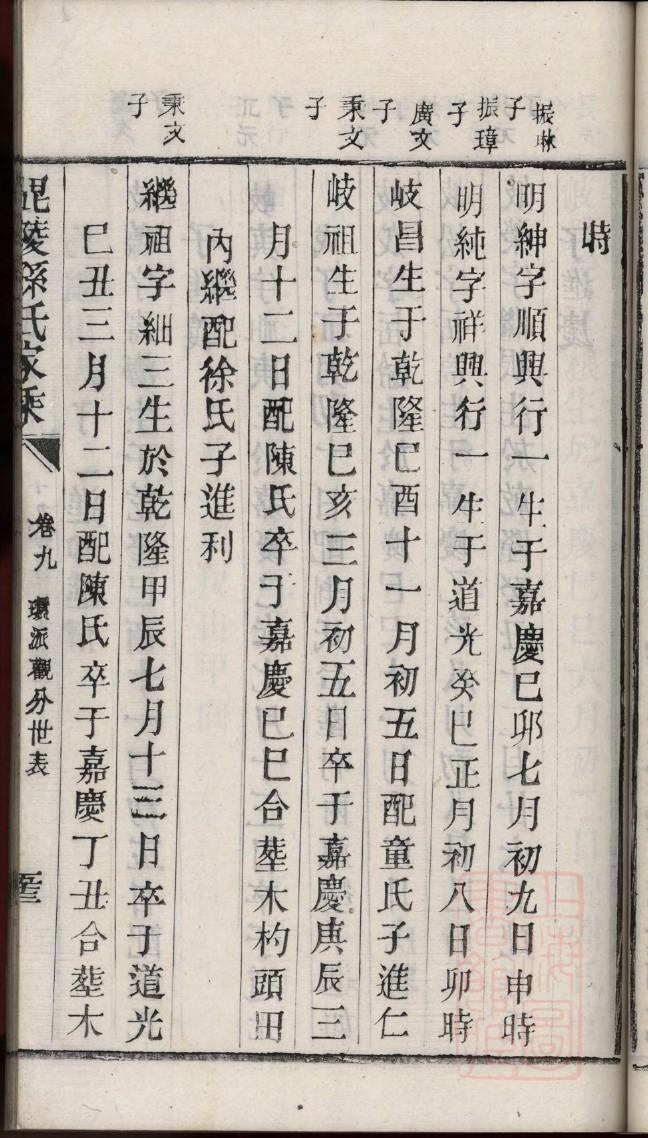 時
振琳子
明紳字順興行一生于嘉慶巳卯七月初九日申時
振璋子
明純字祥興行一生于道光癸巳正月初八日卯時
廣文子
岐昌生于乾隆巳酉十一月初五日配童氏子進仁
秉文子
岐祖生于乾隆巳亥三月初五日卒于嘉慶庚辰三
月十二日配陳氏卒于嘉慶巳巳合塟木杓頭田
內繼配徐氏子進利
秉文子
繼祖字細三生於乾隆甲辰七月十三日卒于道光
巳丑三月十二日配陳氏卒于嘉慶丁丑合塟木
毘陵孫氏家乘
卷九 環派觀分世表